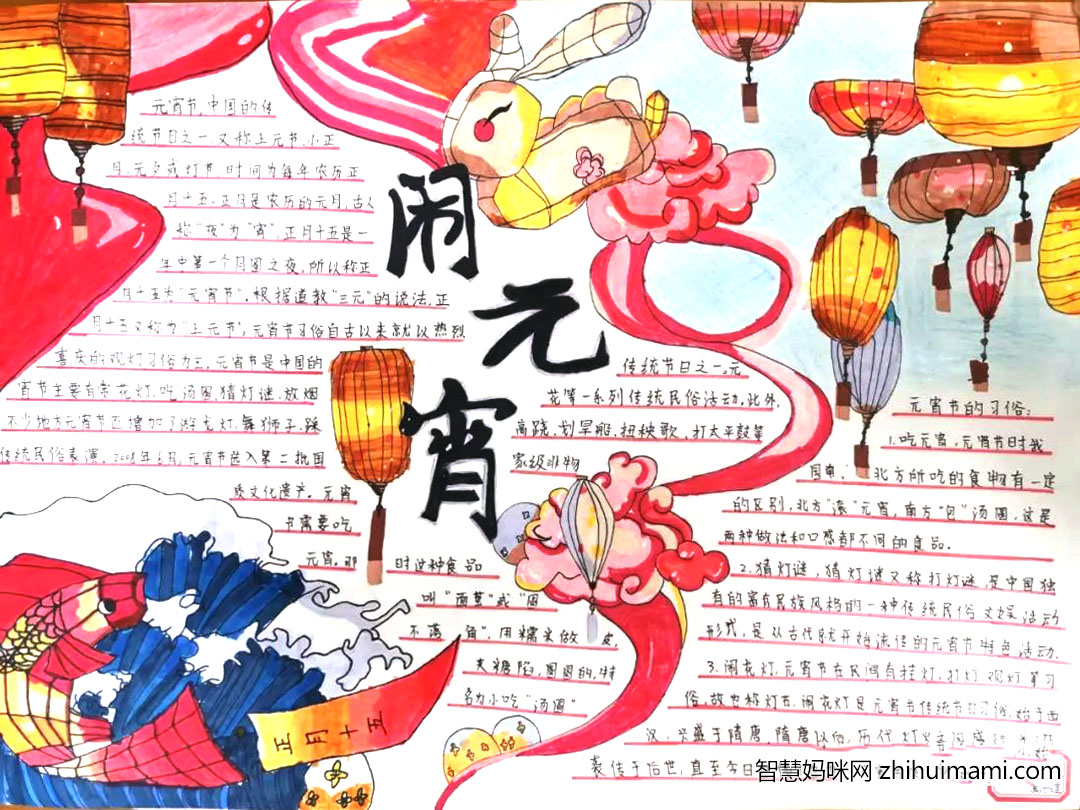 闹
元
宵
元宵节,中国的传
统节日之一,又称上元节,小正
月、元夕或灯节,时间为每年农历正
月十五,正月是农历的元月,古人
称"夜"为"宵",正月十五是一
年中第一个月圆之夜,所以称正
月十五为"元宵节",根据道教"三元"的说法,正
月十五又称为"上元节",元宵节习俗自古以来就以热烈
喜庆的观灯习俗为主,元宵节是中国的
传统节日之一。元
宵节主要有赏花灯,吃汤圆,猜灯谜,放烟
花等一系列传统民俗活动,此外,
不少地方元宵节还增加了游龙灯,舞狮子,踩
高跷,划旱船,扭秧歌,打太平鼓等
传统民俗表演,2008年6月,元宵节选入第二批国
家级非物
质文化遗产。元宵
节需要吃
元宵,那时这种食品
叫"面茧"或"圆
不落角",用糯米做皮,
夹糖馅,圆圆的,特
名为小吃"汤圆"
正月十五
元宵节的习俗:
1.吃元宵,元宵节时我
国南、北方所吃的食物有一定
的区别,北方"滚"元宵,南方"包"汤圆,这是
两种做法和口感都不同的食品.
2.猜灯谜,猜灯谜又称打灯谜,是中国独
有的富有民族风格的一种传统民俗文娱活动
形式,是从古代就开始流传的元宵节特色活动.
3.闹花灯,元宵节在民间有挂灯,打灯,观灯等习
俗,故也称灯节,闹花灯是元宵节传统节日习俗,始于西
汉,兴盛于隋唐,隋唐以后,历代灯火
传于后世,直至今日
智慧妈咪网 zhihuimami.com